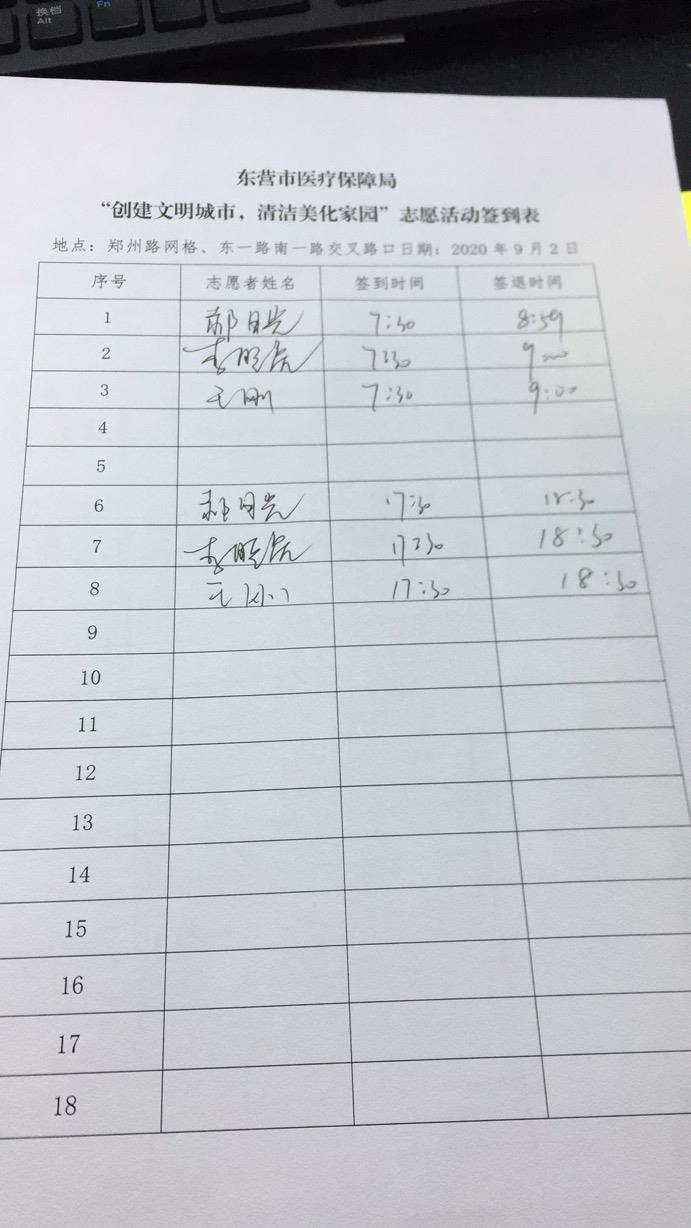 换档
Alt
Fn
东营市医疗保障局
“创建文明城市，清洁美化家园”志愿活动签到表
地点：郑州路网格、东一路南一路交叉路口日期：2020 年 9 月 2 日
序号 志愿者姓名 签到时间 签退时间
1 7:30 8:59
2 7:30 9:00
3 王刚 7:30 9:00
4
5
6 17:30 18:30
7 17:30 18:30
8 王刚 17:30 18:30
9
10
11
12
13
14
15
16
17
18